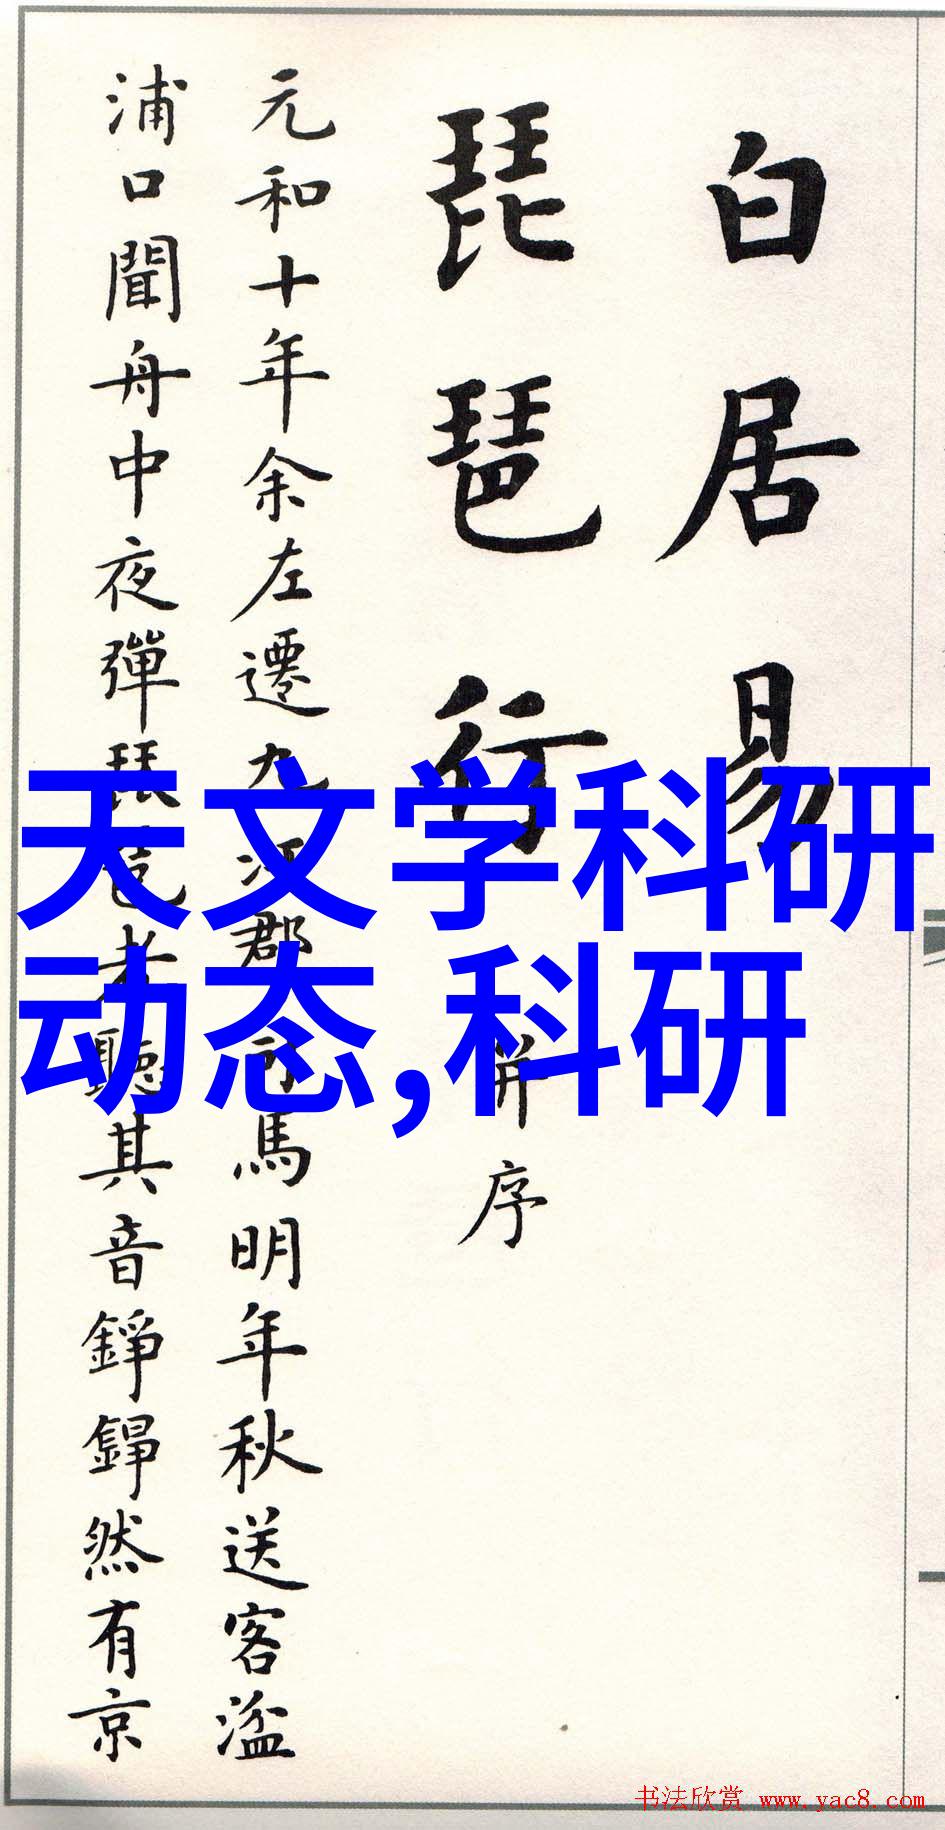 白居易
琵琶行 并序
元和十年余左遷九江郡司馬明年秋送客湓
浦口聞舟中夜彈琵琶者聽其音錚錚然有京
天文学科研
动态,科研
书法欣赏 www.yac8.com